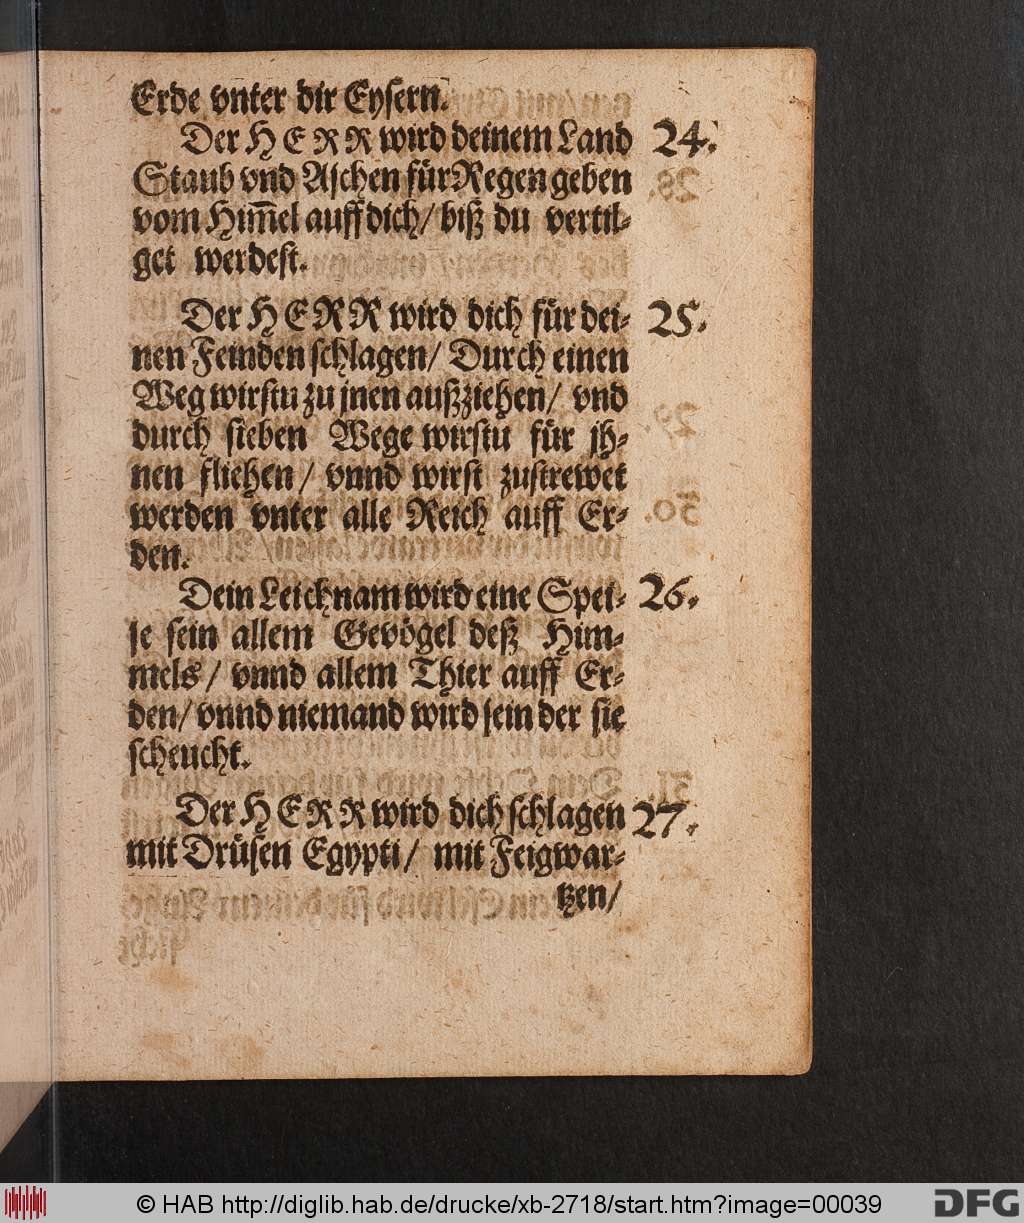 Erde vnter dir Eysern.
Der HERR wird deinem Land 24.
Staub vnd Aschen für Regen geben
vom Him̄el auff dich/ biß du vertil-
get werdest.
Der HERR wird dich für dei- 25.
nen Feinden schlagen/ Durch einen
Weg wirstu zu jnen außziehen/ vnd
durch sieben Wege wirstu für jh-
nen fliehen/ vnnd wirst zustrewet
werden vnter alle Reich auff Er-
den.
Dein Leichnam wird eine Spei- 26.
se sein allem Gevögel deß Him-
mels/ vnnd allem Thier auff Er-
den/ vnnd niemand wird sein der sie
scheucht.
Der HERR wird dich schlagen 27.
mit Drüsen Egypti/ mit Feigwar-
tzen/
© HAB http://diglib.hab.de/drucke/xb-2718/start.htm?image=00039
DFG